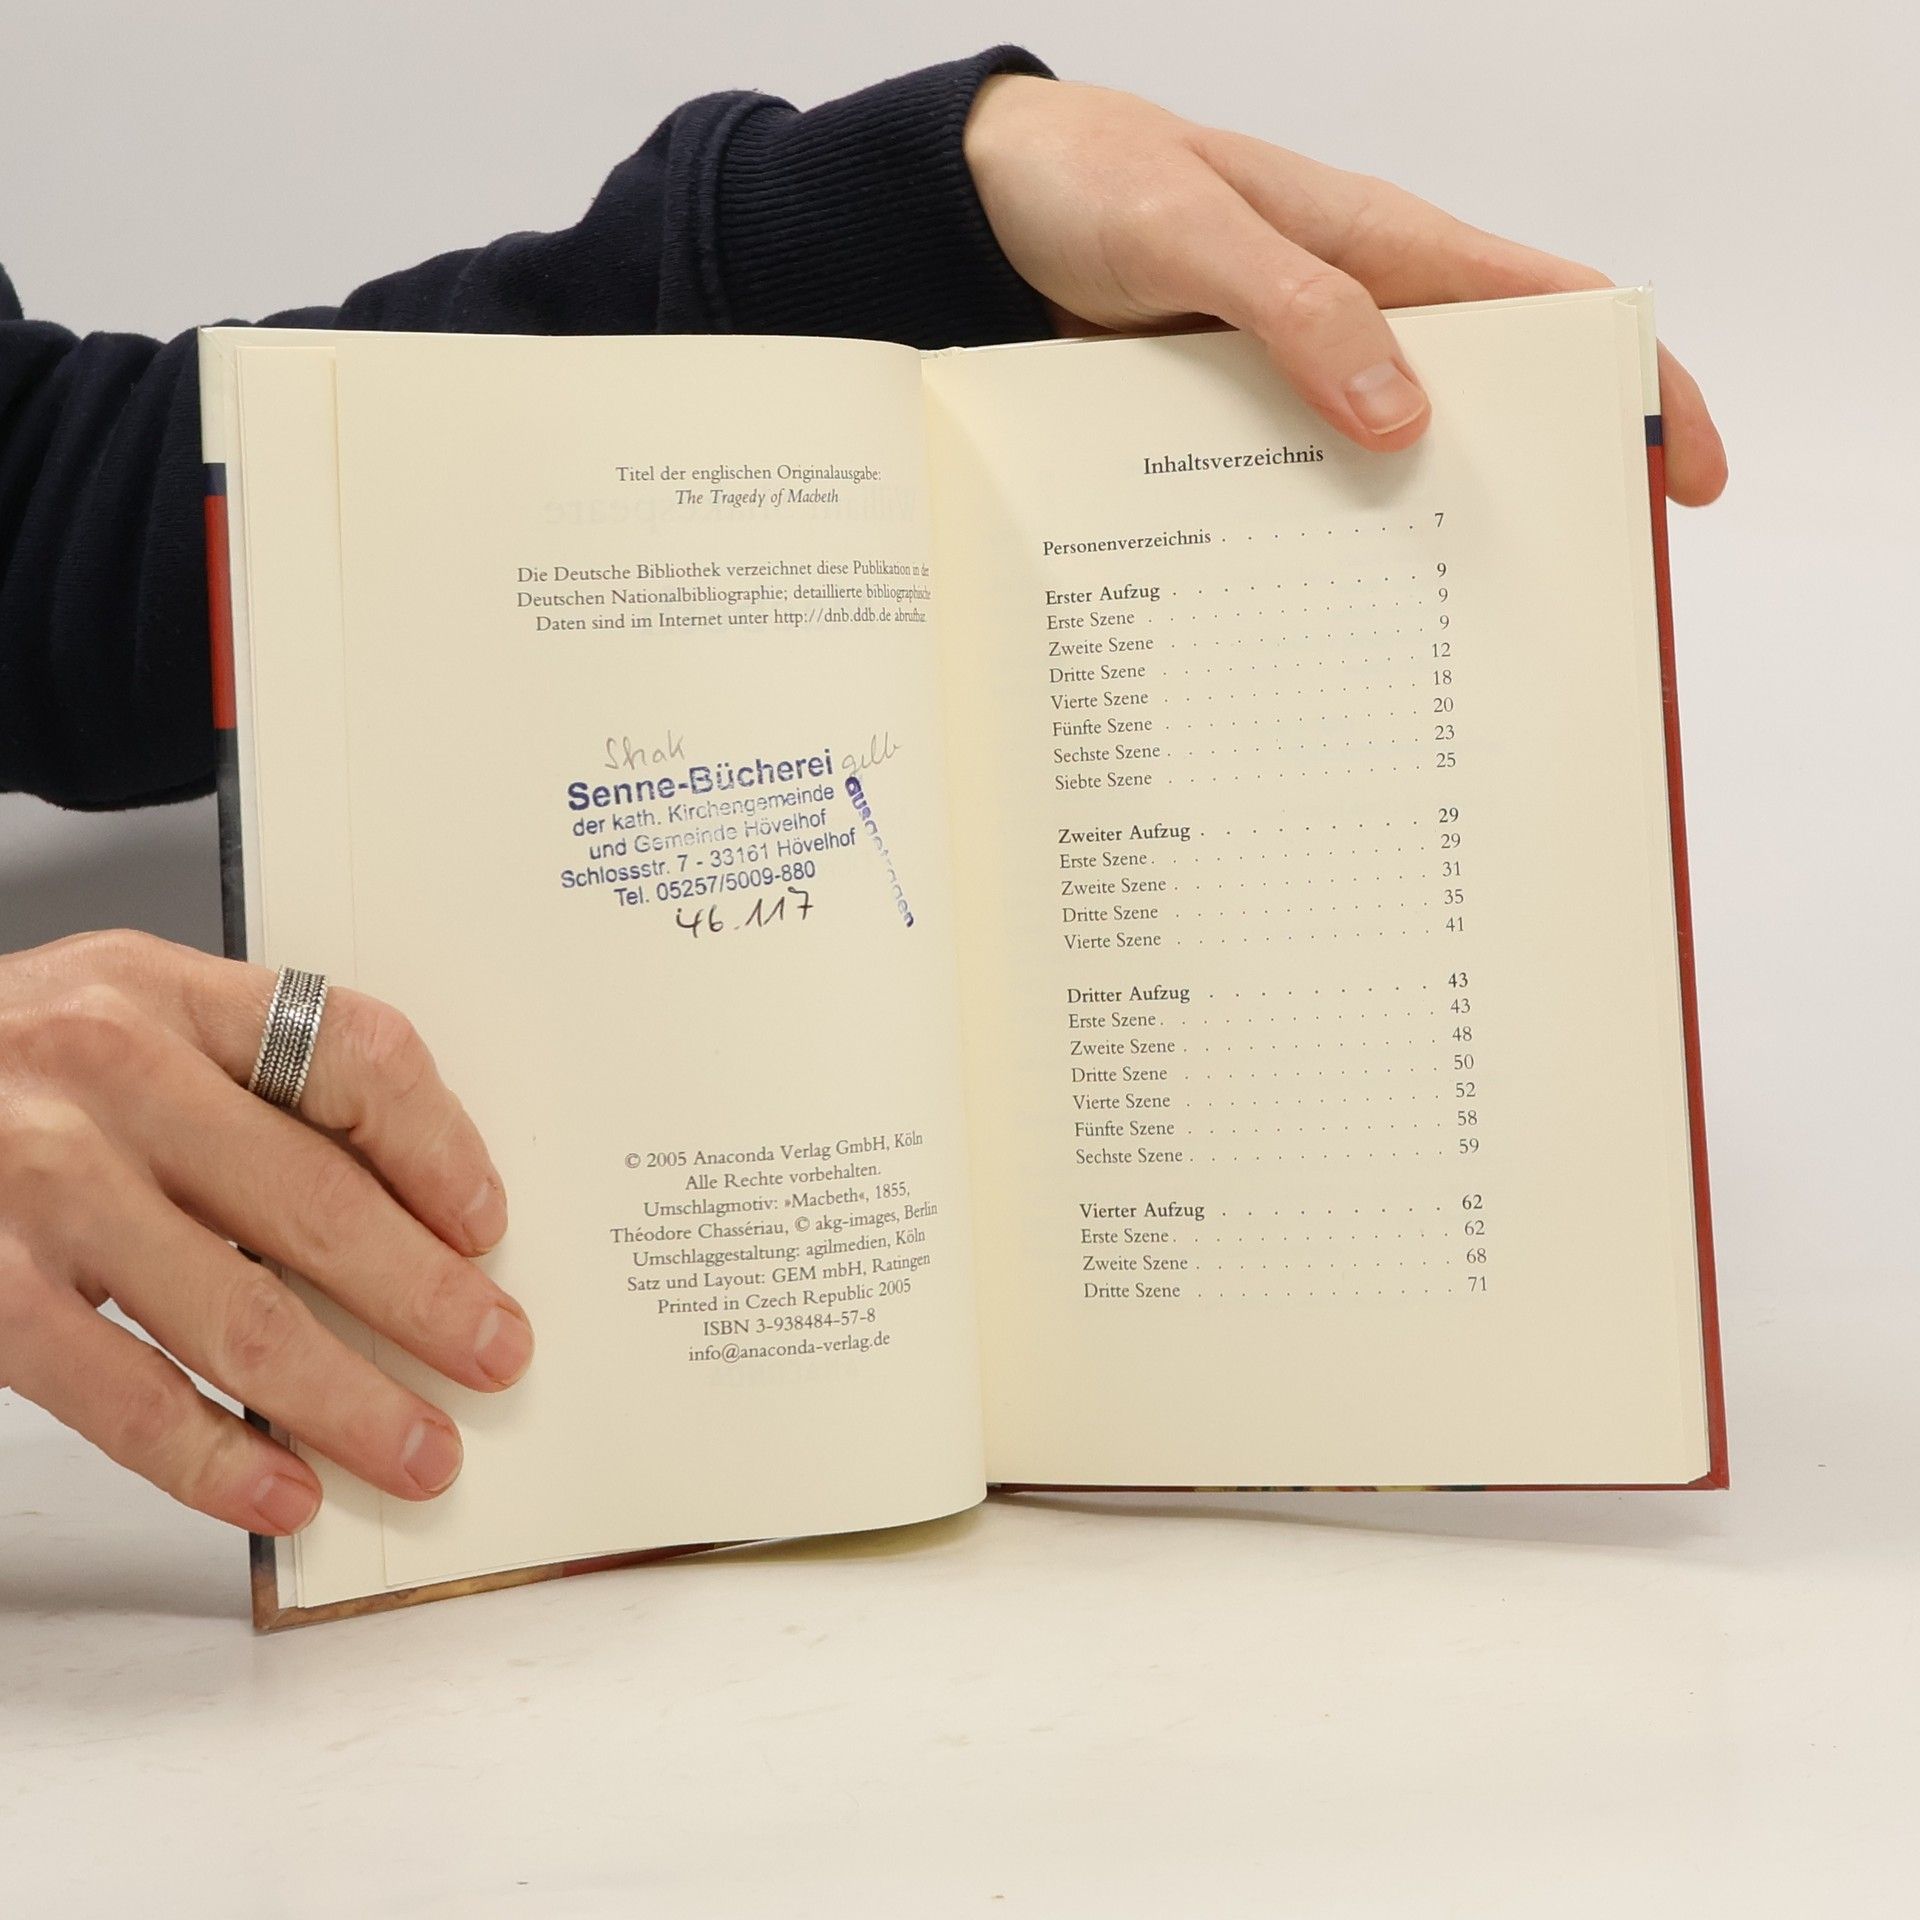 Titel der englischen Originalausgabe:
The Tragedy of Macbeth
Die Deutsche Bibliothek verzeichnet diese Publikation in der
Deutschen Nationalbibliographie; detaillierte bibliographische
Daten sind im Internet unter http://dnb.ddb.de abrufbar.
gelb
Senne-Bücherei
der kath. Kirchengemeinde
und Gemeinde Hövelhof
Schlossstr. 7 - 33161 Hövelhof
Tel. 05257/5009-880
ausgetragen
46.117
© 2005 Anaconda Verlag GmbH, Köln
Alle Rechte vorbehalten.
Umschlagmotiv: »Macbeth«, 1855,
Théodore Chassériau, © akg-images, Berlin
Umschlaggestaltung: agilmedien, Köln
Satz und Layout: GEM mbH, Ratingen
Printed in Czech Republic 2005
ISBN 3-938484-57-8
info@anaconda-verlag.de
Inhaltsverzeichnis
Personenverzeichnis . . . . . . . . . 7
Erster Aufzug . . . . . . . . . . . 9
Erste Szene . . . . . . . . . . . . 9
Zweite Szene . . . . . . . . . . . 9
Dritte Szene . . . . . . . . . . . . 12
Vierte Szene . . . . . . . . . . . . 18
Fünfte Szene . . . . . . . . . . . . 20
Sechste Szene . . . . . . . . . . . 23
Siebte Szene . . . . . . . . . . . . 25
Zweiter Aufzug . . . . . . . . . . 29
Erste Szene . . . . . . . . . . . . 29
Zweite Szene . . . . . . . . . . . 31
Dritte Szene . . . . . . . . . . . . 35
Vierte Szene . . . . . . . . . . . . 41
Dritter Aufzug . . . . . . . . . . 43
Erste Szene . . . . . . . . . . . . 43
Zweite Szene . . . . . . . . . . . 48
Dritte Szene . . . . . . . . . . . . 50
Vierte Szene . . . . . . . . . . . . 52
Fünfte Szene . . . . . . . . . . . . 58
Sechste Szene . . . . . . . . . . . 59
Vierter Aufzug . . . . . . . . . . 62
Erste Szene . . . . . . . . . . . . 62
Zweite Szene . . . . . . . . . . . 68
Dritte Szene . . . . . . . . . . . . 71